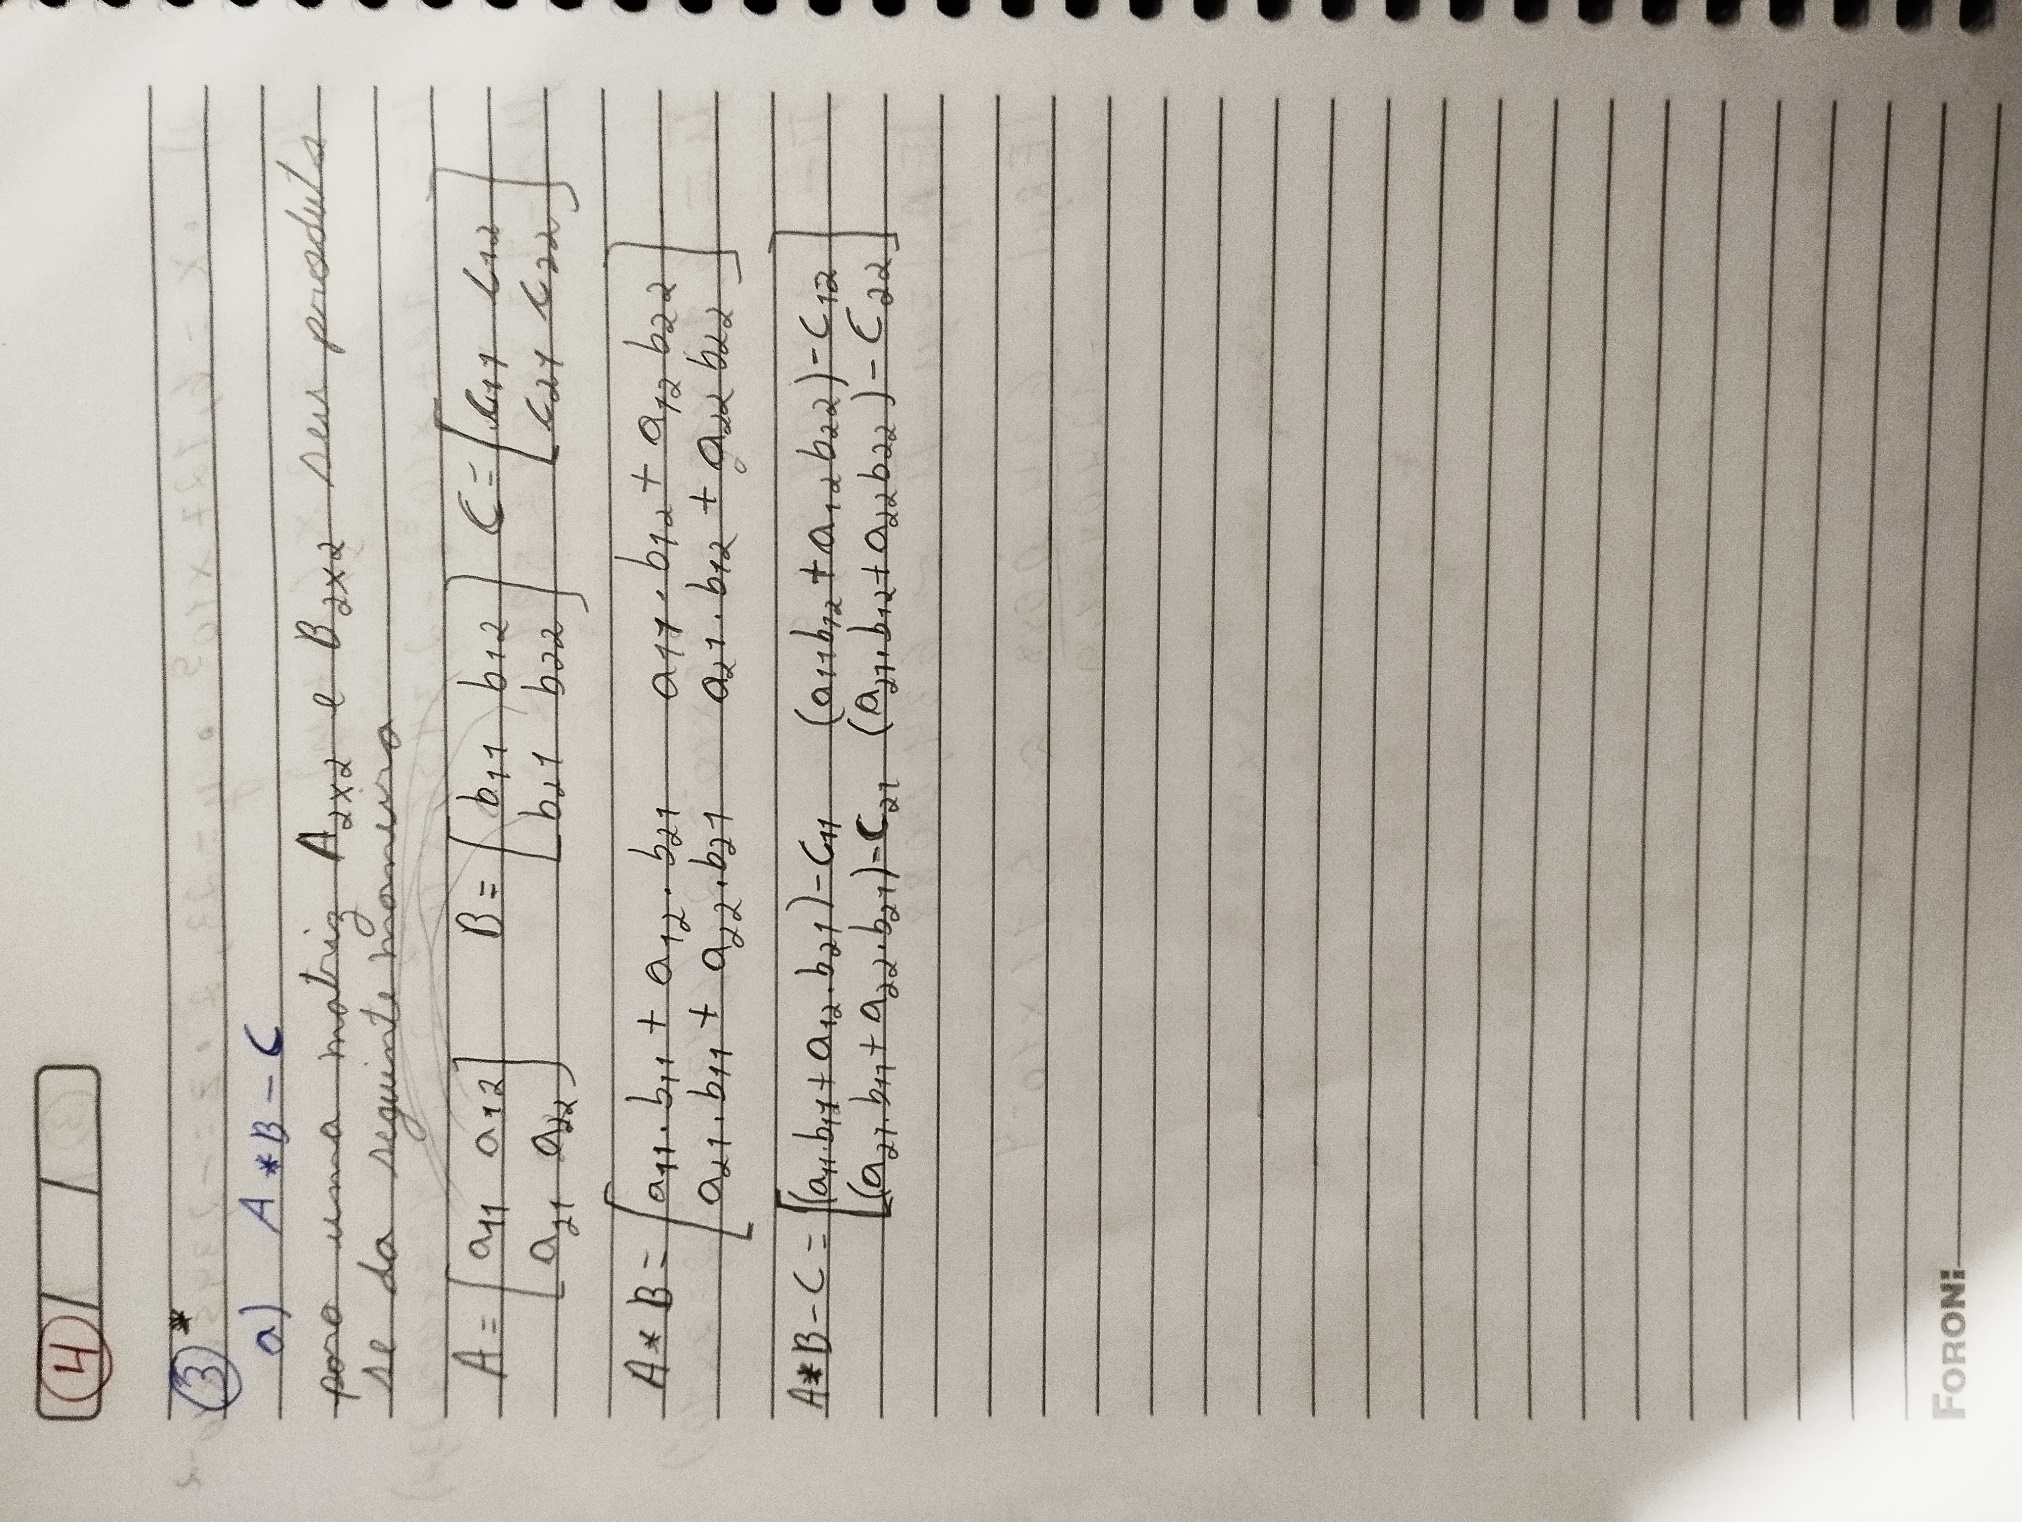 4 / /
3*
a) A*B-C
para uma matriz A2x2 e B2x2 seu produto
se da seguinte maneira
A = [a11 a12 B = [b11 b12 C = [c11 c12
a21 a22] b21 b22] c21 c22]
A*B = [a11.b11 + a12.b21 a11.b12 + a12 b22
a21.b11 + a22.b21 a21.b12 + a22 b22]
A*B-C = [(a11.b11 + a12.b21)-C11 (a11b12 + a12b22)-C12
(a21.b11 + a22.b21)-C21 (a21.b12 + a22b22)-C22]
FORONI